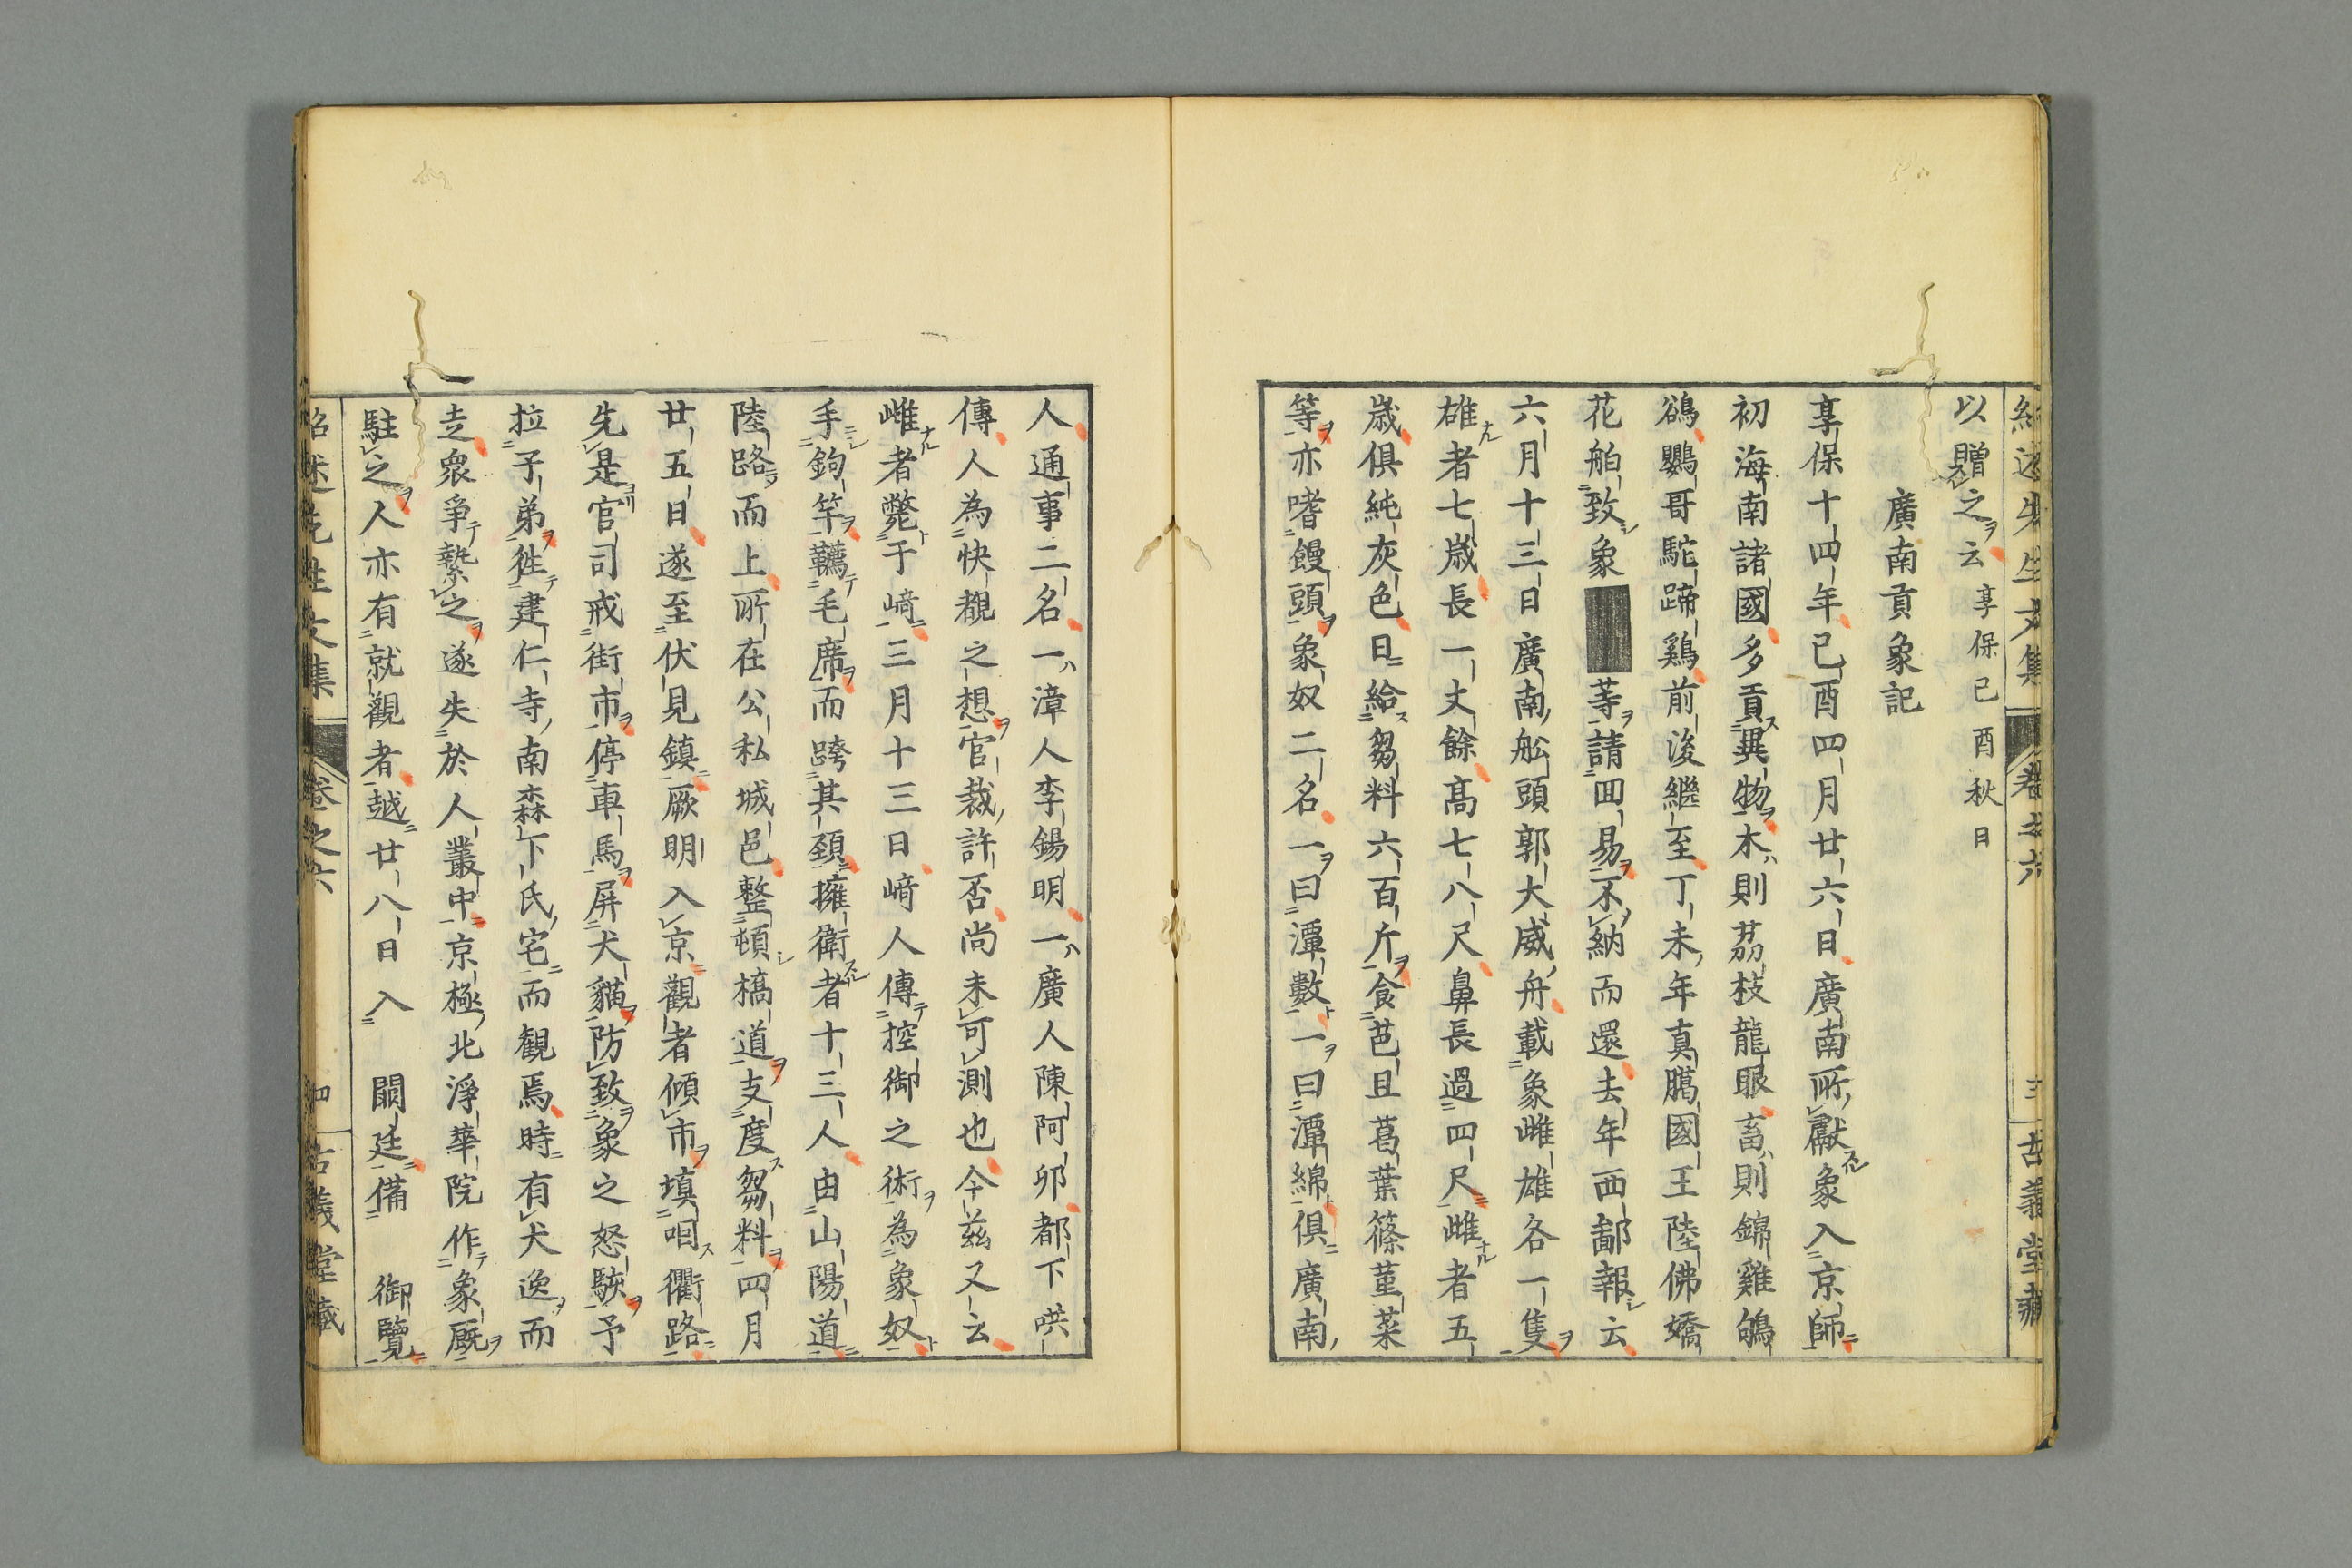 以贈之云 享保己酉秋日
廣南貢象記
享保十四年己酉四月廿六日廣南所獻象入京師
初海南諸國多貢異物木則茘枝龍眼畜則錦雞鴝
鵒鸚哥駝蹄鷄前後繼至丁未年真臈國王陸佛嬌
花舶致象 等請回易不納而還去年西鄙報云
六月十三日廣南舩頭郭大威舟載象雌雄各一隻
雄者七歳長一丈餘高七八尺鼻長過四尺雌者五
歳俱純灰色日給芻料六百斤食芭且葛葉篠菫菜
等亦嗜饅頭象奴二名一曰潭數一曰潭綿俱廣南
人通事二名一漳人李錫明一廣人陳阿卯都下哄
傳人為快覩之想官裁許否尚未可測也今茲又云
雌者斃于﨑三月十三日﨑人傳控御之術為象奴
手鉤竿韉毛席而跨其頚擁衛者十三人由山陽道
陸路而上所在公私城邑整頓橋道支度芻料四月
廿五日遂至伏見鎮厥明入京觀者傾市填咽衢路
先是官司戒街市停車馬屏犬貓防致象之怒駭予
拉子弟徃建仁寺南森下氏宅而観焉時有犬逸而
走衆爭縶之遂失於人叢中京極北淨華院作象厩
駐之人亦有就觀者越廿八日入 闕廷備 御覽
紹述先生文集 卷之六 三 古義堂藏
紹述先生文集 卷之六 四 古義堂藏